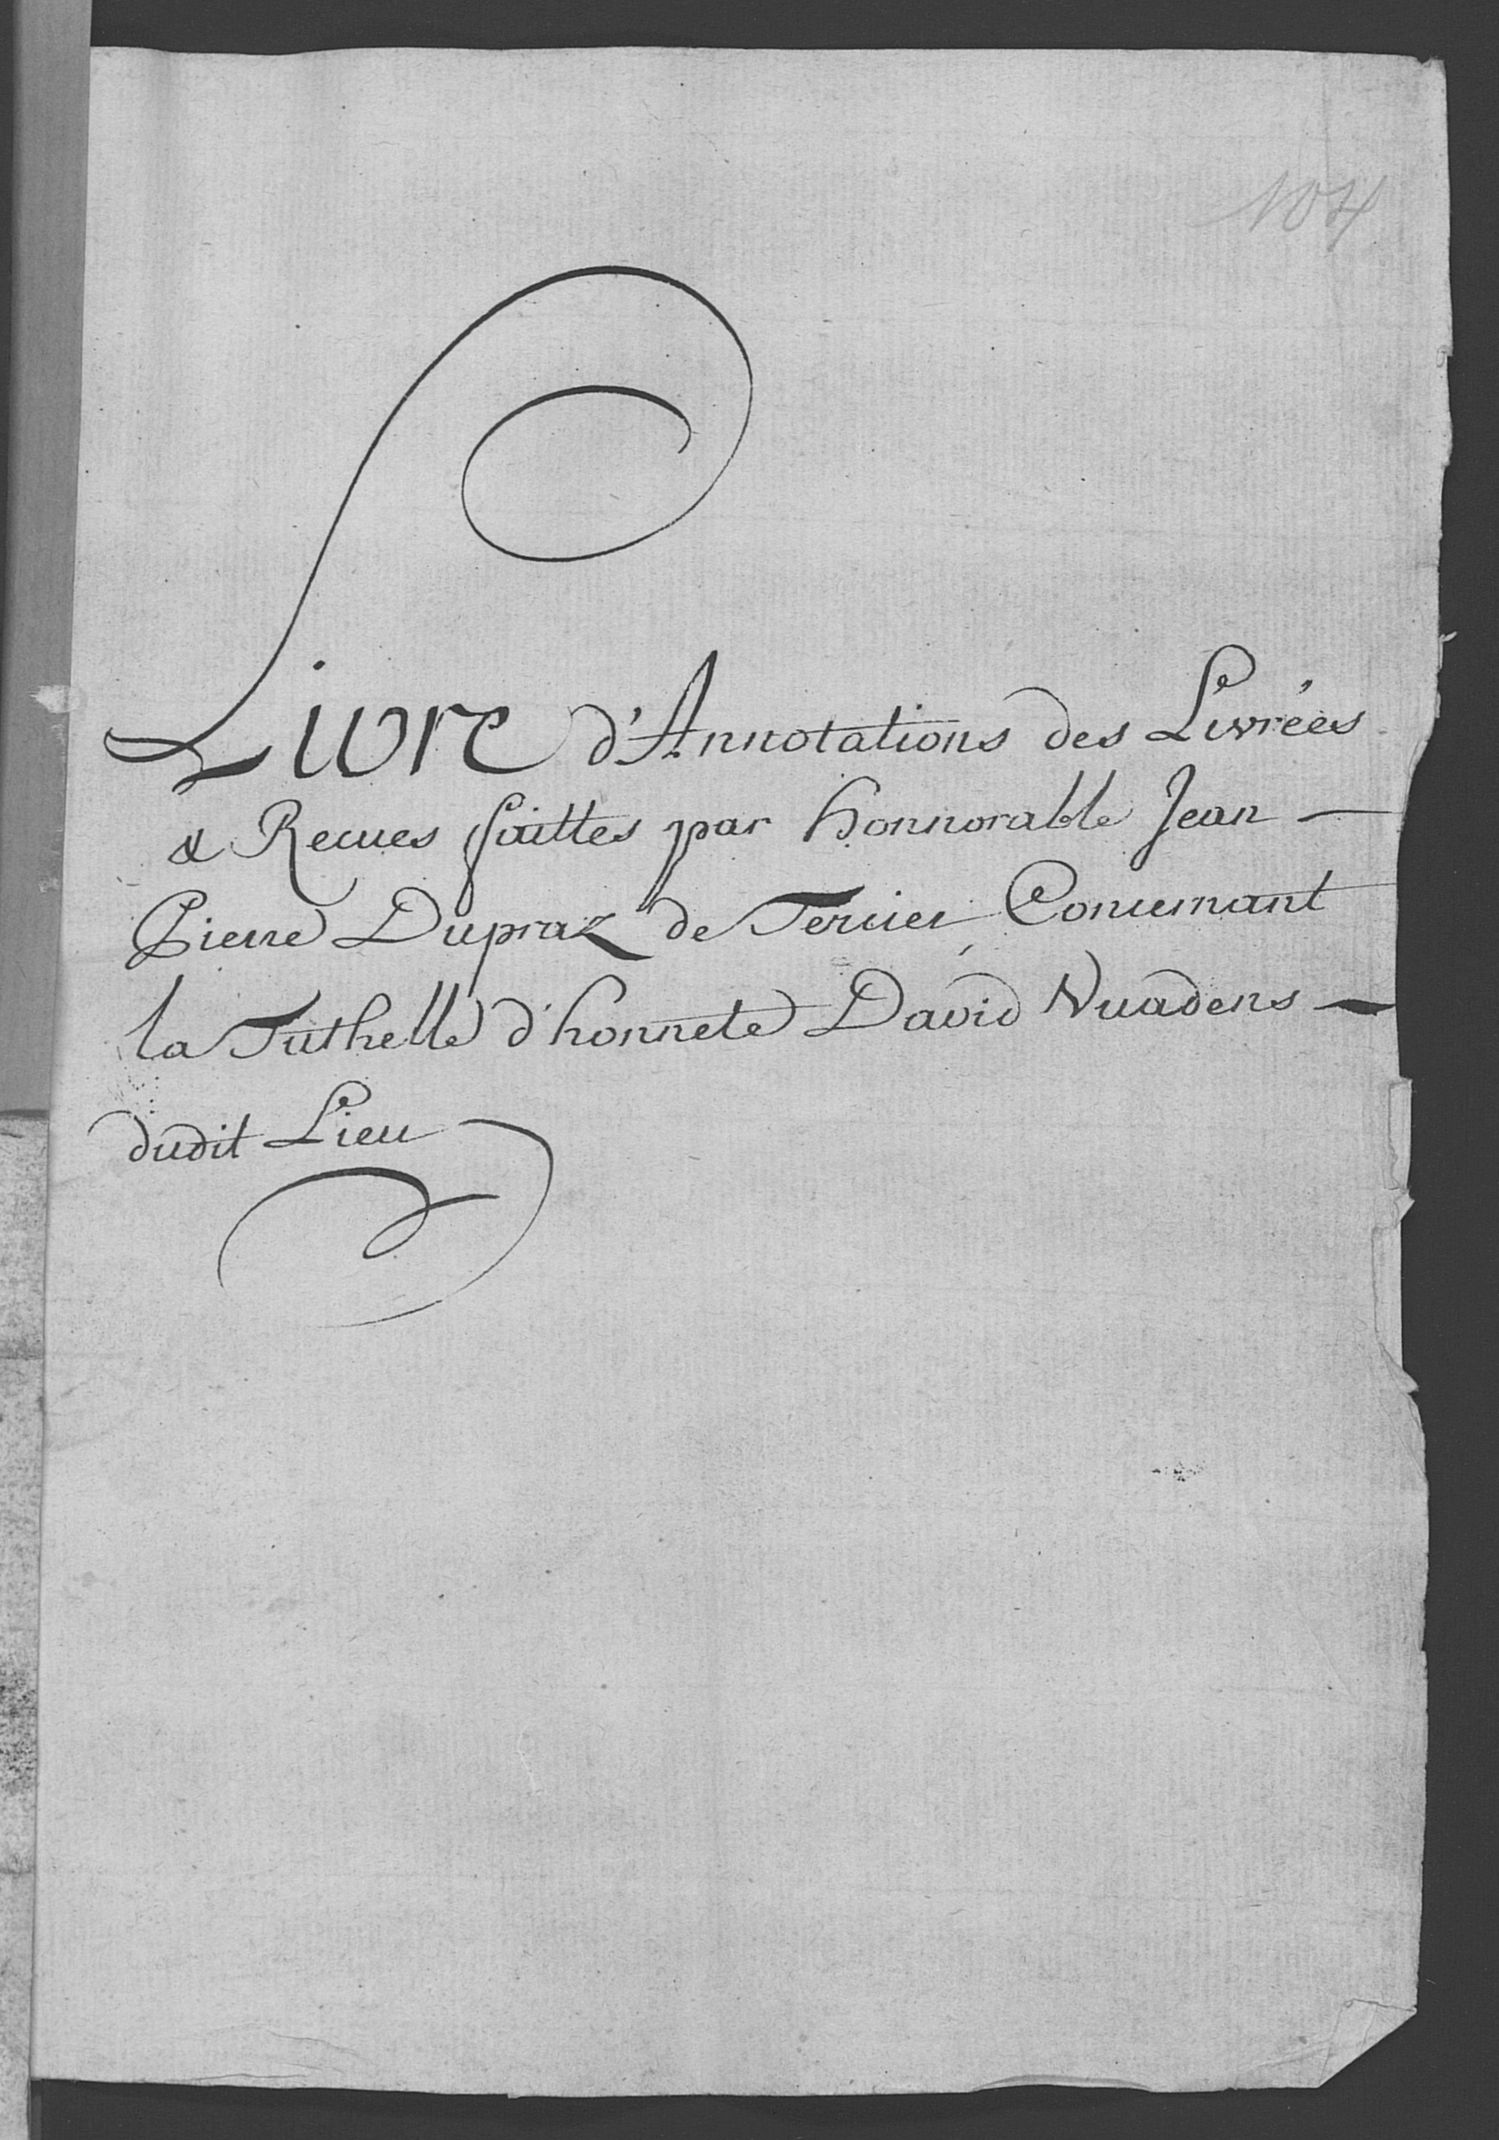 104
Livre d'Annotations des Livrées
& Recues faittes par honnorable Jean
Pierre Dupraz de Tercier, Concernant
la Tuthelle d'honnete David Vuadens
dudit Lieu